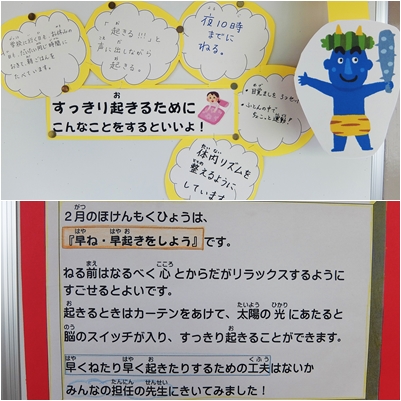 学校に行く日も、お休みの
日も、だいたい同じ時間に
おきて、朝ごはんを
たべています。
起きる!!!と
声に出しながら
起きる。
夜10時
までに
ねる。
すっきり起きるために
こんなことをするといいよ!
・目覚ましを 3コセット
・ふとんの中で
ちょこっと運動!
体内リズムを
整えるように
しています
2月のほけんもくひょうは、
『早ね・早起きをしよう』です。
ねる前はなるべく心とからだがリラックスするように
すごせるとよいです。
起きるときはカーテンをあけて、太陽の光にあたると
脳のスイッチが入り、すっきり起きることができます。
早くねたり早く起きたりするための工夫はないか
みんなの担任の先生にきいてみました!